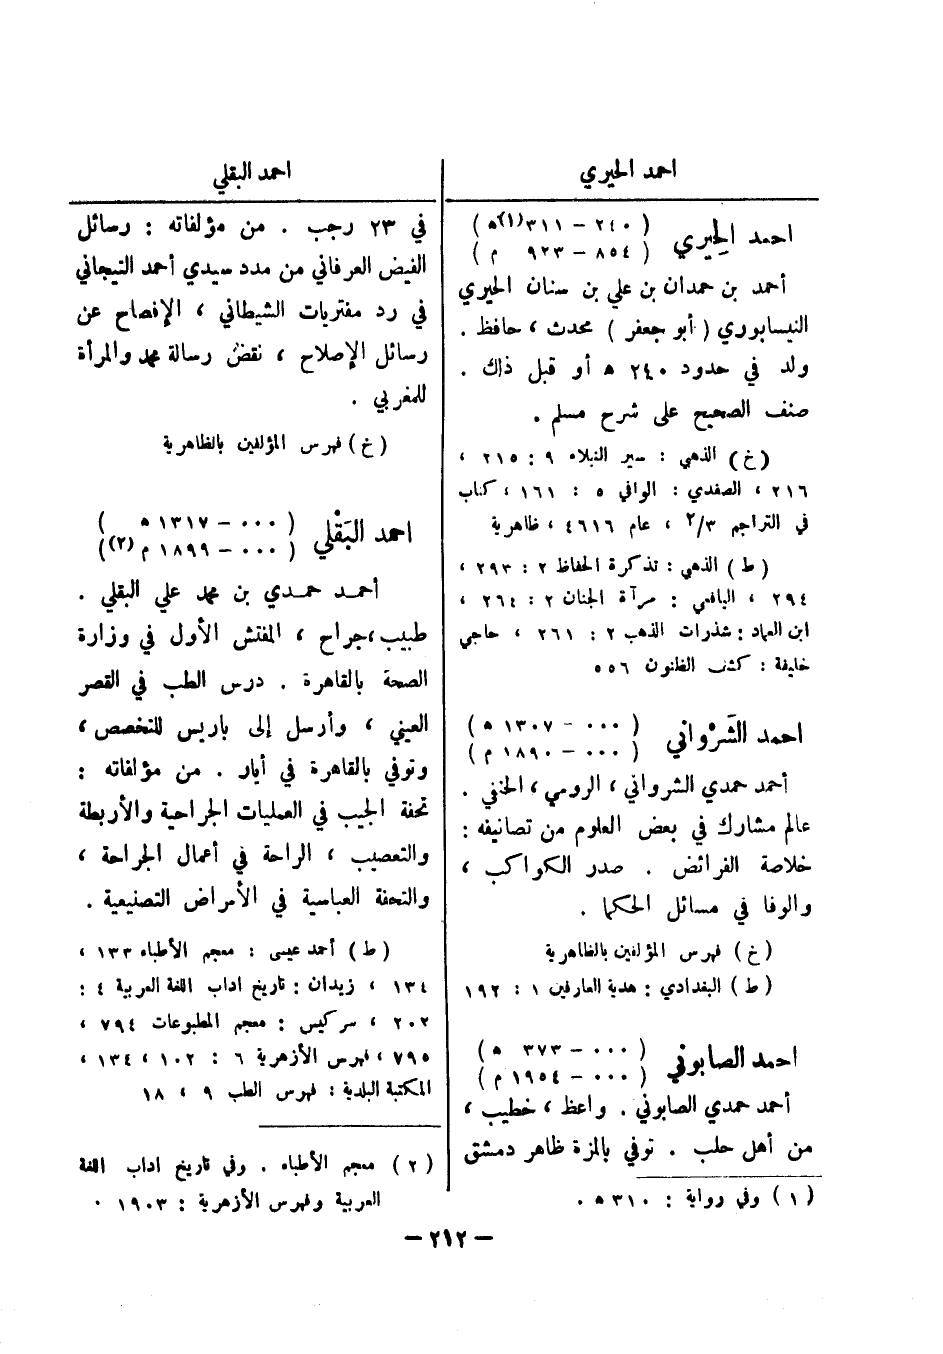 احمد الحيري
احمد الحِيري ( ٢٤٠ – ٣١١(١)ه )
( ٨٥٤ – ٩٢٣ م )
أحمد بن حمدان بن علي بن سنان الحيري
النيسابوري ( أبو جعفر ) محدث ، حافظ .
ولد في حدود ٢٤٠ ه أو قبل ذلك .
صنف الصحيح على شرح مسلم .
(خ) الذهبي : سير النبلاء ٩ : ٢١٥ ،
٢١٦ ، الصفدي : الوافي ٥ : ١٦١ ، كتاب
في التراجم ٢/٣ ، عام ٤٦١٦ ، ظاهرية
( ط ) الذهبي : تذكرة الحفاظ ٢ : ٢٩٣ ،
٢٩٤ ، اليافعي : مرآة الجنان ٢ : ٢٦٤ ،
ابن العماد : شذرات الذهب ٢ : ٢٦١ ، حاجي
خليفة : كشف الظنون ٥٥٦
احمد الشَرْواني ( ٠٠٠ – ١٣٠٧ ه )
( ٠٠٠ – ١٨٩٠ م )
أحمد حمدي الشرواني ، الرومي ، الحنفي .
عالم مشارك في بعض العلوم من تصانيفه :
خلاصة الفرائض . صدر الكواكب ،
والوفا في مسائل الحكما .
( خ ) فهرس المؤلفين بالظاهرية
( ط ) البغدادي : هدية العارفين ١ : ١٩٢
احمد الصابوني ( ٠٠٠ – ٣٧٣ ه )
( ٠٠٠ – ١٩٥٤ م )
أحمد حمدي الصابوني . واعظ ، خطيب ،
من أهل حلب . توفي بالمزة ظاهر دمشق
( ١ ) وفي رواية : ٣١٠ ه .
احمد البقلي
في ٢٣ رجب . من مؤلفاته : رسائل
الفيض العرفاني من مدد سيدي أحمد التيجاني
في رد مفتريات الشيطاني ، الإفصاح عن
رسائل الإصلاح ، نقض رسالة محمد والمرأة
للمغربي .
( خ ) فهرس المؤلفين بالظاهرية
احمد البَقْلي ( ٠٠٠ – ١٣١٧ ه )
( ٠٠٠ – ١٨٩٩ م (٢))
أحمد حمدي بن محمد علي البقلي .
طبيب ، جراح ، المفتش الأول في وزارة
الصحة بالقاهرة . درس الطب في القصر
العيني ، وأرسل إلى باريس للتخصص ،
وتوفي بالقاهرة في أيار . من مؤلفاته :
تحفة الجيب في العمليات الجراحية والأربطة
والتعصيب ، الراحة في أعمال الجراحة ،
والتحفة العباسية في الأمراض التصنيعية .
( ط ) أحمد عيسى : معجم الأطباء ١٣٣ ،
١٣٤ ، زيدان : تاريخ اداب اللغة العربية ٤ :
٢٠٢ ، سركيس : معجم المطبوعات ٧٩٤ ،
٧٩٥ ، فهرس الأزهرية ٦ : ١٠٢ ، ١٣٤ ،
المكتبة البلدية : فهرس الطب ٩ ، ١٨
( ٢ ) معجم الأطباء . وفي تاريخ اداب اللغة
العربية وفهرس الأزهرية : ١٩٠٣ .
– ٢١٢ –